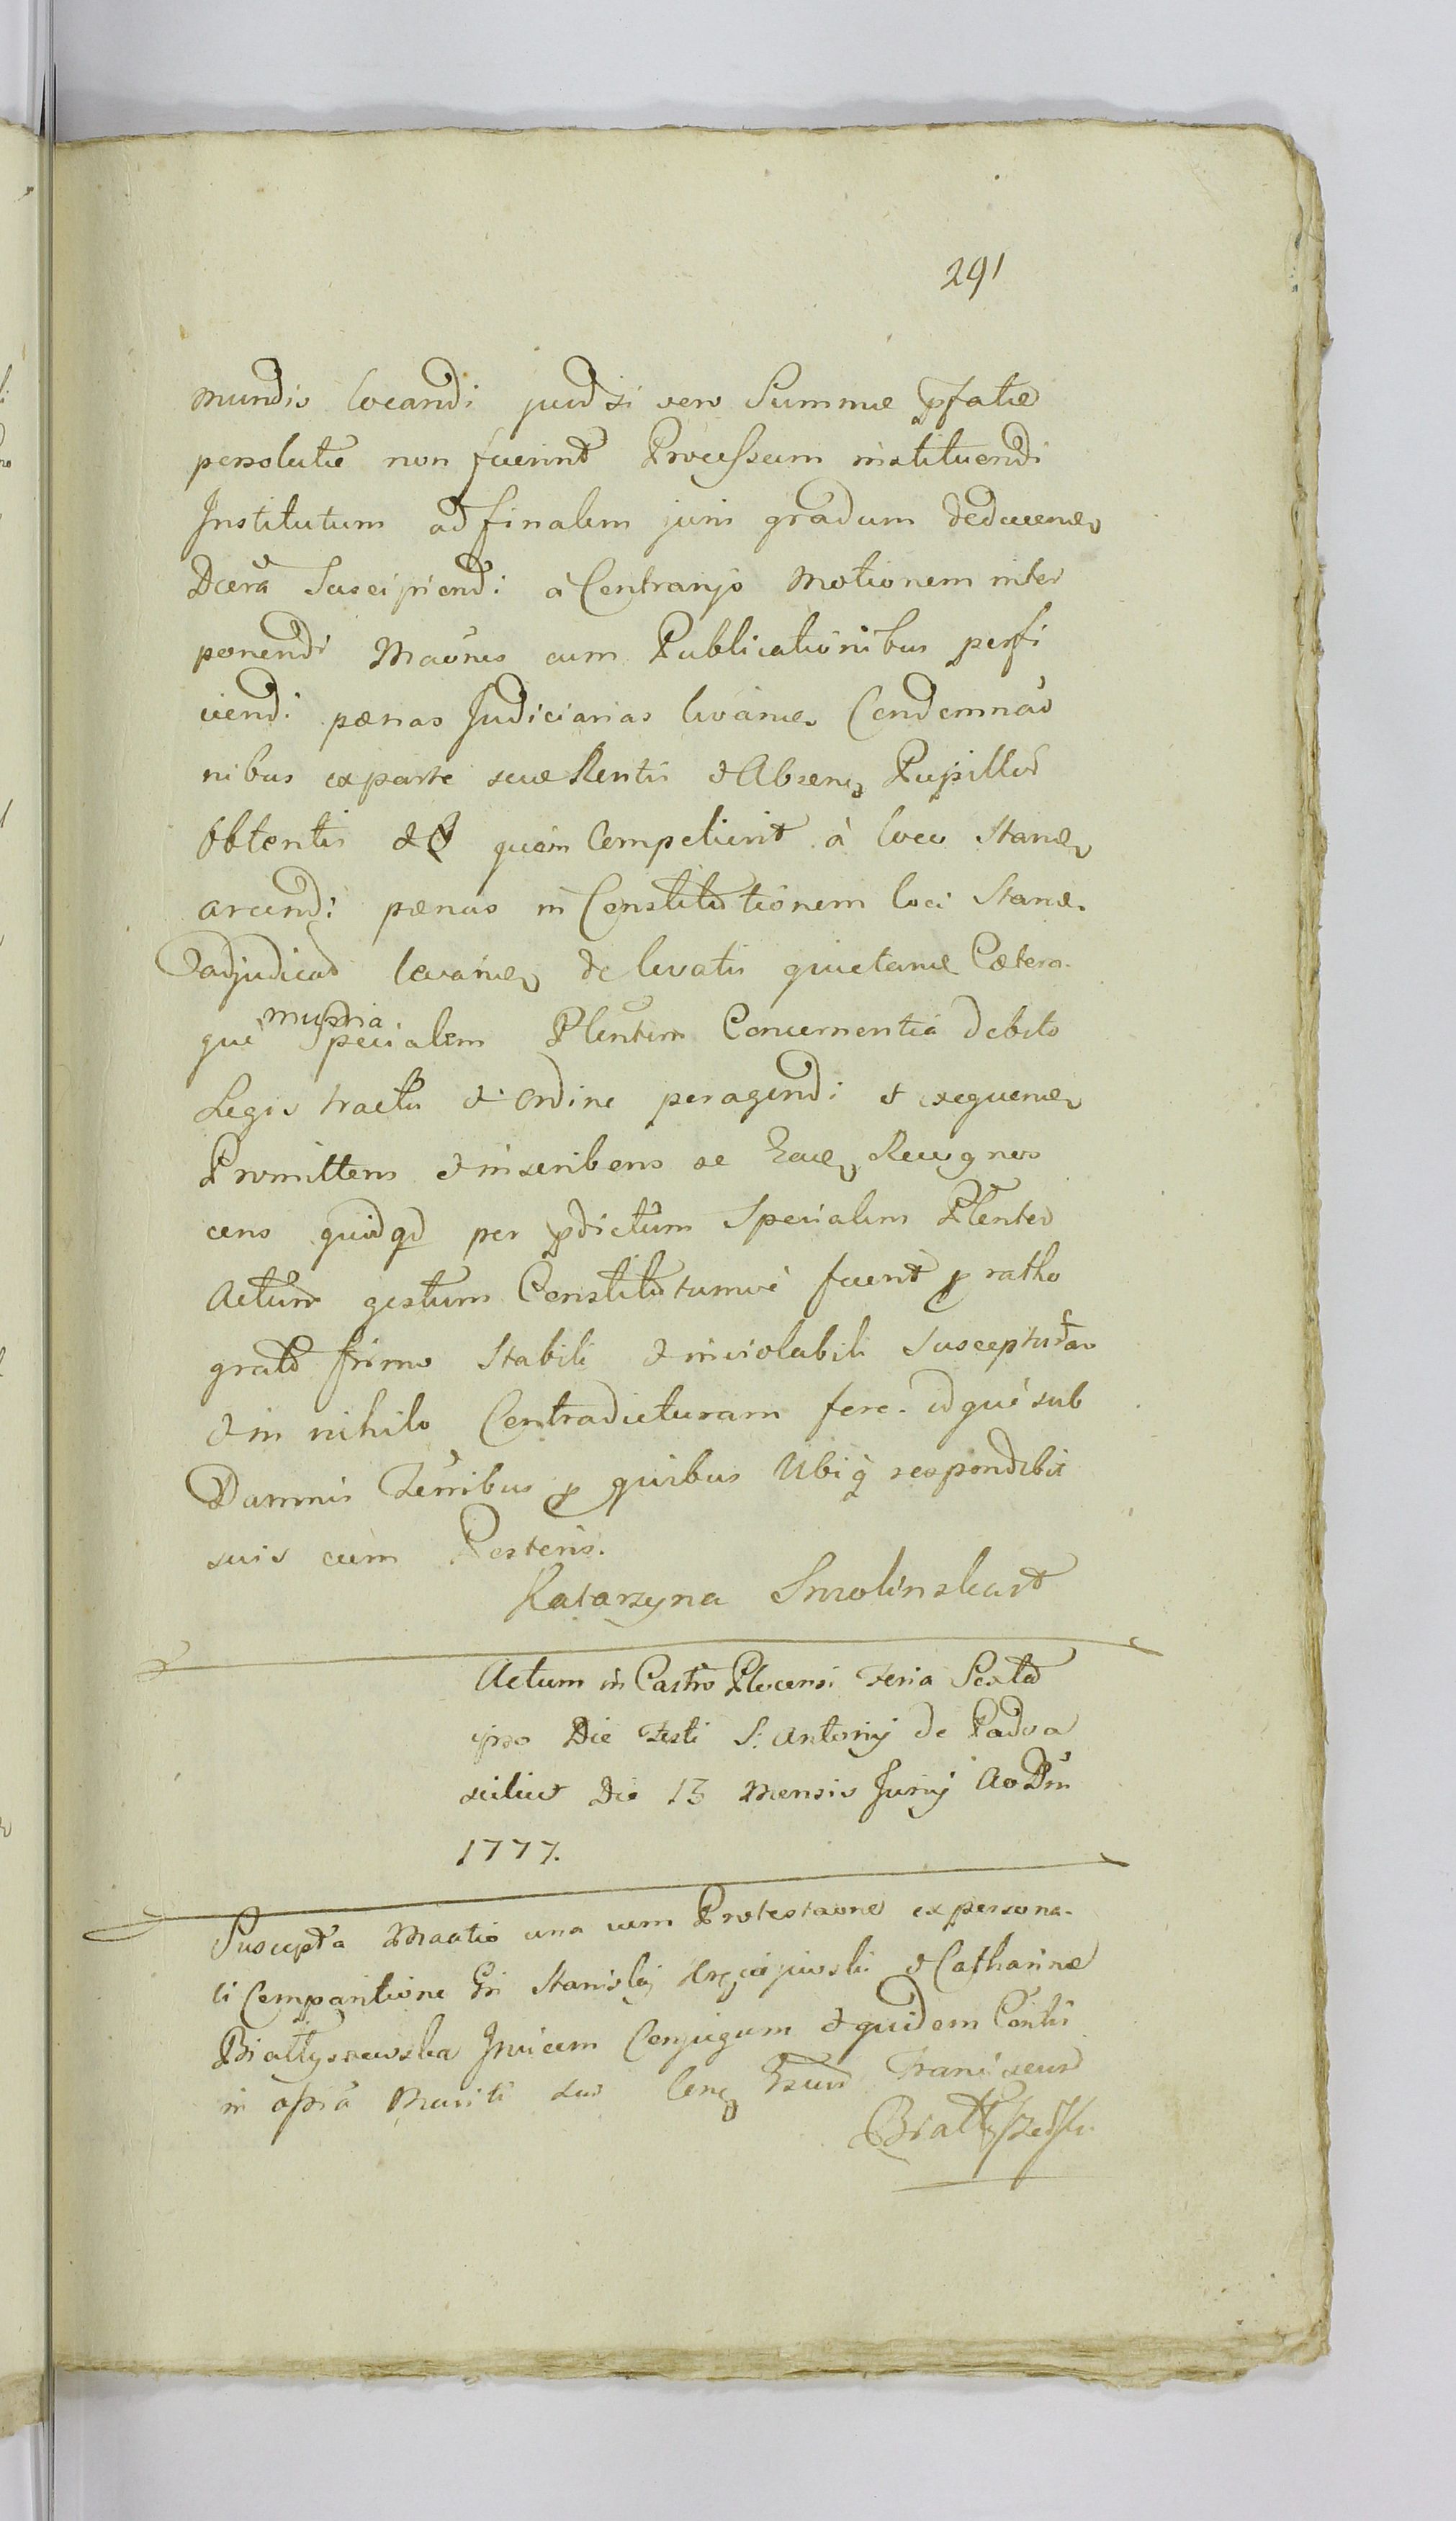 291
mundis locandi quod si vero Summæ pfatæ
persolutæ non fuerint Processum instituendi
Institutum ad finalem juris gradum deducene
Dcera Suscipiendi à Contrario Motionem inter
ponendi Maones cum Publicationibus perfi
ciendi pænas Judiciarias levane Condemnao
nibus ex parte suæ Rentis et Absene Pupillor
Obtentis et quem Competierit à loco Stane
arcendi pænas in Constitutionem loci Stane
adjudicat levane de levatis quietane Cætera
munia
què Specialem Plentem Concernentia debito
Legis tractu et ordine peragendi et exequene
Promittens et inscribens se Recognos
cens quidqd per pdictum Specialem Plenten
Actum gestum Constitutumve fuerit p ratho
grato firmo Stabili et inviolabili suscepturam
et in nihilo Contradicturam fore. idquè sub
Damnis Terribus p quibus Ubiq respondebit
suis cum Posteris.
Katarzyna Smolinska
Actum in Castro Plocensi Feria Sexta
ipso Die Festi S. Antonij de Padva
scilicet Die 13 Mensis Junij Ao Dni
1777.
Suscepta Maatio una cum Protestaone ex persona-
li Comparitione Gn Stanislai et Catharinæ
Białłyszewska Invicem Conjugum et quidem Contis
in assia Mariti sui Franciscus
Białłyszewski